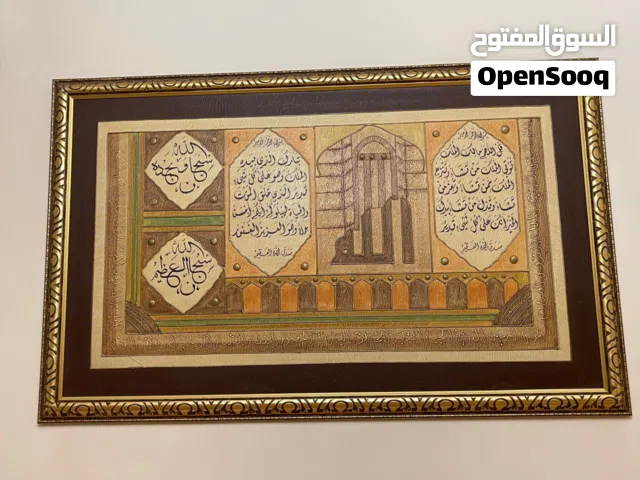 السوق المفتوح
OpenSooq
بسم الله الرحمن الرحيم
قل اللهم مالك الملك
تؤتي الملك من تشاء وتنزع
الملك ممن تشاء وتعز من
تشاء وتذل من تشاء بيدك
الخير انك على كل شيء قدير
صدق الله العظيم
بسم الله الرحمن الرحيم
تبارك الذي بيده
الملك وهو على كل شيء
قدير الذي خلق الموت
والحياة ليبلوكم ايكم احسن
عملا وهو العزيز الغفور
صدق الله العظيم
سبحان الله وبحمده
سبحان الله العظيم